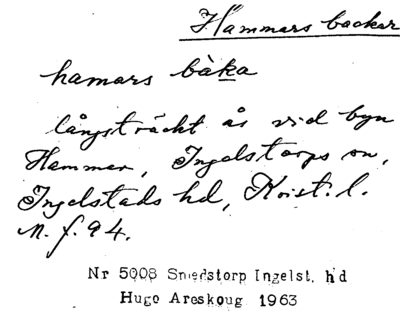 Hammars backar
hamars bàka
långsträckt ås vid byn
Hammar, Ingelstorps sn,
Ingelstads hd, Krist. l.
N. f. 94.
Nr 5008 Smedstorp Ingelst. hd
Hugo Areskoug 1963